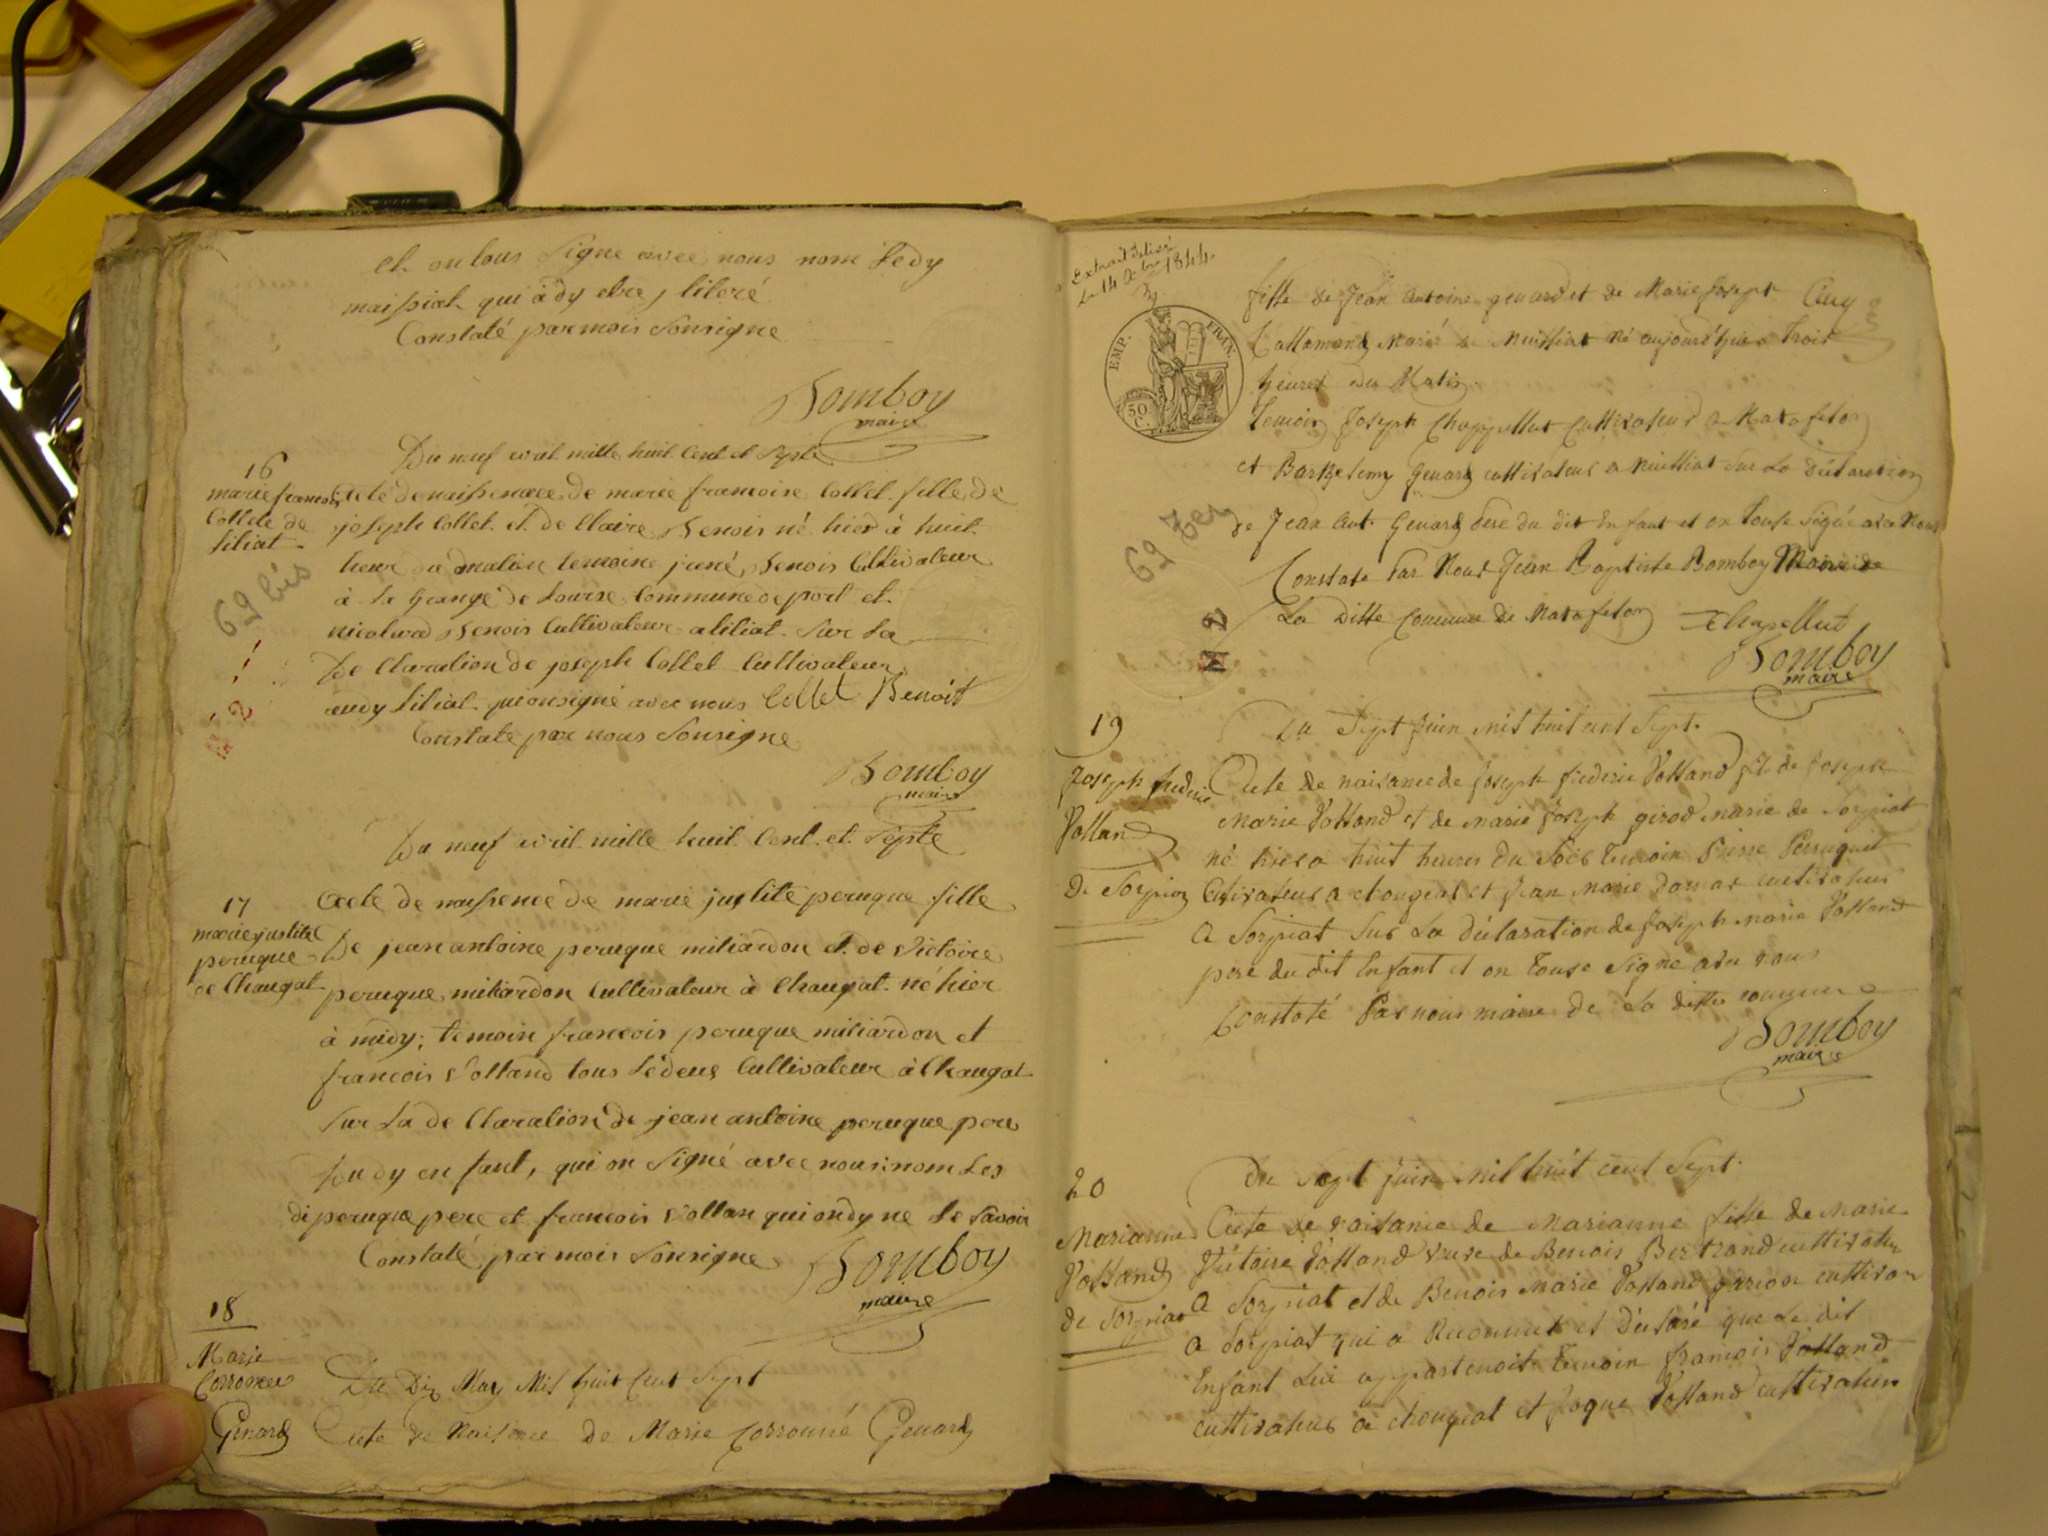 et on tous Signe avec nous nom Ledy
maissiat qui à dy etre, litoré
Constaté par mois Sousigne
Bomboy
maire
Du neuf avril mille huit Cent et Septe
16
marie francois
Collete de
siliat
Acte de naissence de marie francoise Collet fille de
joseph Collet et de Claire Benois né hier à huit
heur du matin temoins Benois Cultivateur
à la Grange de Commune de port et
Benois Cultivateur a siliat Sur La
De Claration de joseph Collet Cultivateur
audy siliat qui on signé avec nous Collet Benoit
Constate par nous Sousigne
Bomboy
maire
69 bis
Du neuf avril mille huit Cent et Septe
17
marie justite
peruque
de Chaugat
Acte de naissence de marie justite peruque fille
De jean antoine peruque miliardon et de Victoire
peruque miliardon Cultivateur à Chaugat né hier
à midy; temoin francois peruque miliardon et
francois Volland tous Ledeux Cultivateur à Chaugat
Sur La de Claration de jean antoine peruque pere
Du dy en fant, qui on Signé avec nous; nom Les
di peruque pere et francois Vollan qui on dy ne Le Savoir
Constaté par mois Sousigne
Bomboy
maire
18
Marie
Corromée
Genard
Du Dix May Mil huit Cent Sept
Acte de Naisance de Marie Corromé Genard
Extrait délivré
Le 14 1844.
EMP. FRAN.
50
C.
fille de Jean Antoine genard et de Marie Joseph
Lallemand Marié a né aujourd'hui a trois
heures du Matin
Temoin Joseph Chappellut Cultivateur a Matafelon
et Barthelemy Genard cultivateur a Sur La Déclaration
de Jean Ant. Genard Pere du dit Enfant et on Touse Signé avec Nous
Constate Par Nous Jean Baptiste Bomboy Maire de
La Ditte Commune de Matafelon Chapellut
Bomboy
maire
69 ter
19
Joseph frederic
Volland
De Sorpiat
Du Sept Juin mil huit cent Sept.
Acte de naisance de Joseph frederic Volland fils de Joseph
Marie Volland et de Marie Joseph girod Marie de Sorpiat
né hier a huit heures du Soir Temoin Pierre Perruquet
Cultivateur a chougeat et Jean Marie cultivateur
a Sorpiat Sur La Déclaration de Joseph Marie Volland
pere du dit Enfant et on Touse Signé avec nous
Constaté Par nous maire de La ditte commune
Bomboy
maire
20
Marianne
Volland
de Sorpiat
Du Sept Juin mil huit cent Sept.
Acte de naisance de Marianne fille de Marie
Victoire Volland veuve de Benois Bertrand cultivateur
a Sorpiat et de Benois Marie Volland garcon cultivateur
a Sorpiat qui a Reconnut et Déclaré que Le dit
Enfant Lui appartenoit Temoin francois Volland
cultivateur a chougeat et Jaque Volland cultivateur